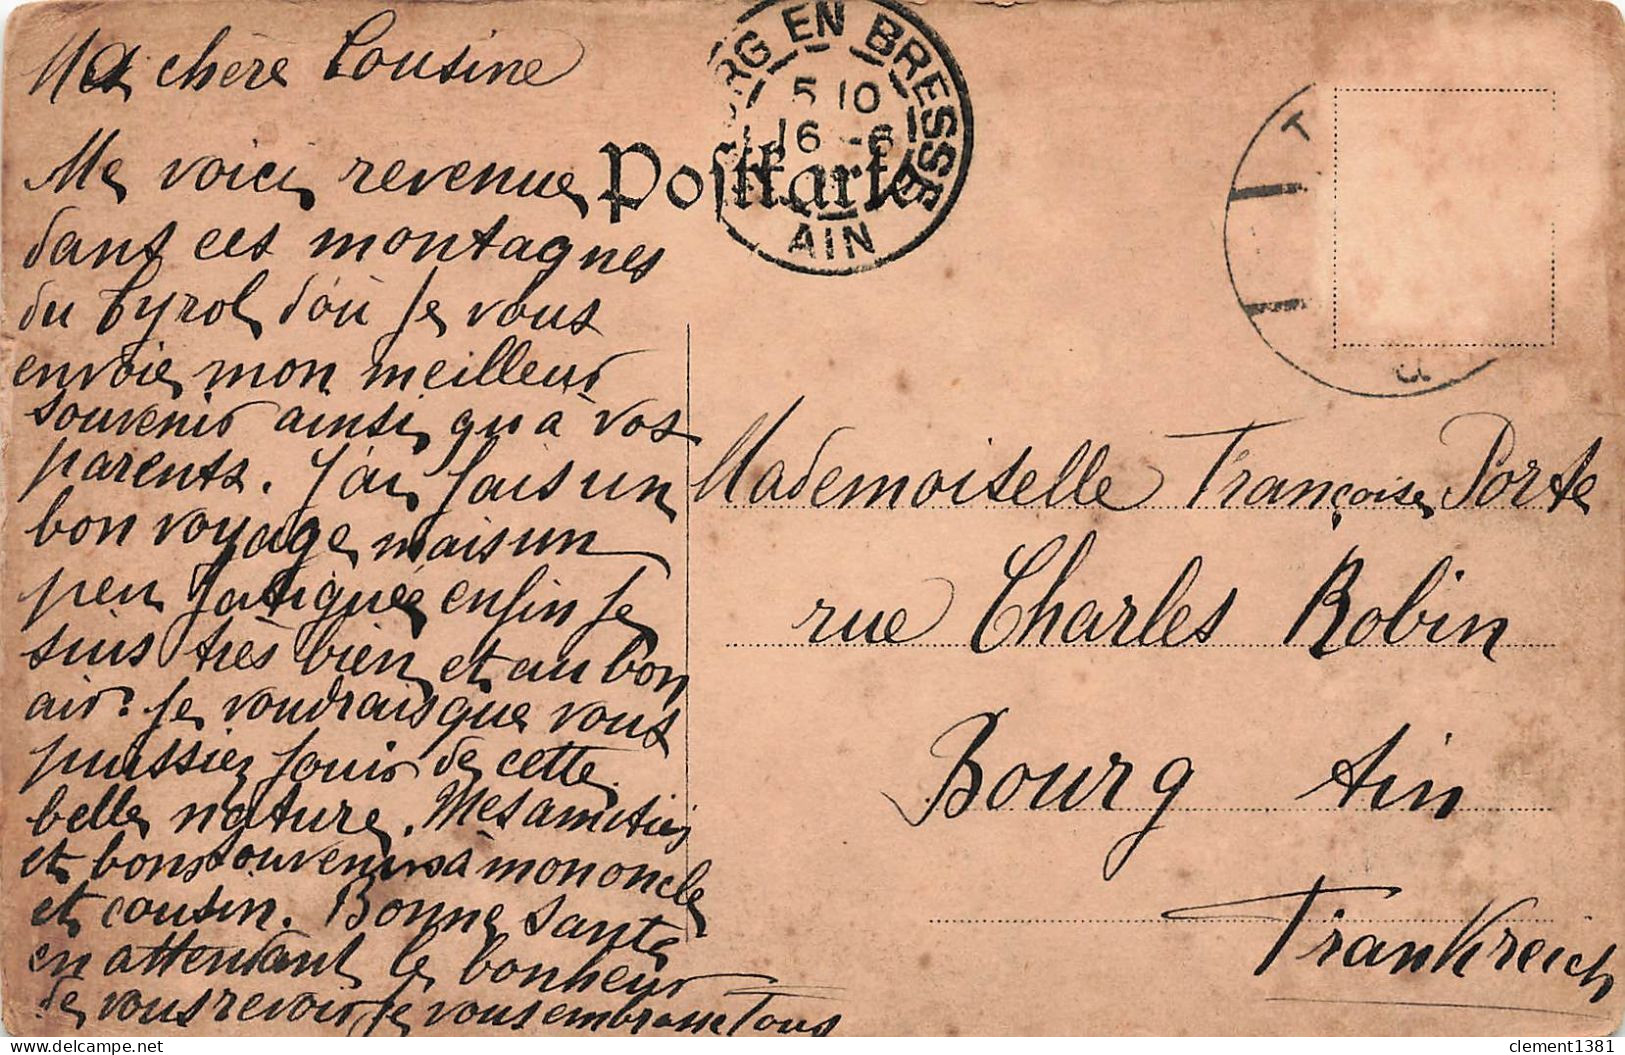 Ma chère Cousine
Me voici revenue
dans ces montagnes
du Tyrol d'où je vous
envoie mon meilleur
souvenir ainsi qu'à vos
parents. J'ai fais un
bon voyage mais un
peu fatiguée enfin je
suis très bien et au bon
air. Je voudrais que vous
puissiez jouir de cette
belle nature. Mes amitiés
et bons souvenirs à mon oncle
et cousin. Bonne santé
en attendant le bonheur
de vous revoir je vous embrasse Tous
Postkarte
RG EN BRESSE
5 10
16 -6
AIN
Mademoiselle Françoise Porte
rue Charles Robin
Bourg Ain
Frankreich
clement1381